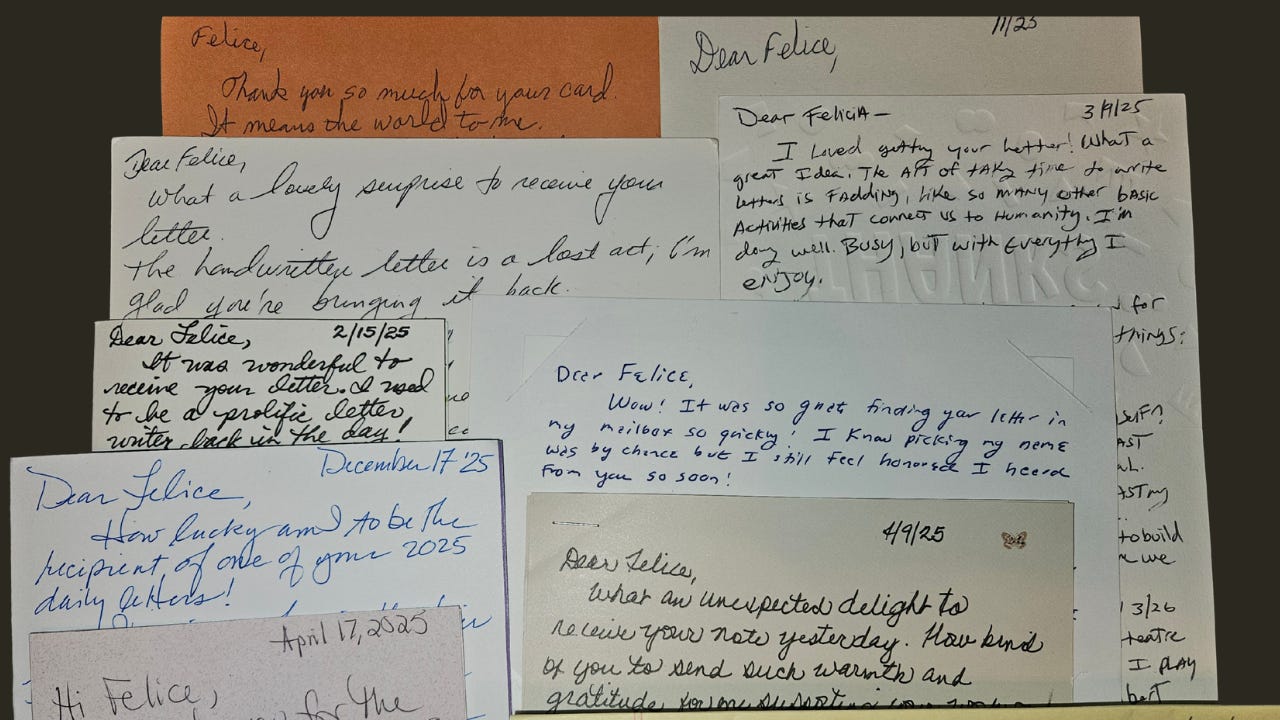 Felice,
Thank you so much for your card.
It means the world to me.
11/25
Dear Felice,
Dear Felice,
What a lovely surprise to receive your
letter.
The handwritten letter is a lost art; I'm
glad you're bringing it back.
Dear FeliciA— 3/9/25
I Loved getting your letter! What a
great Idea. The Art of taking time to write
letters is FADDING, like so MANY other bASIC
Activities that connect us to Humanity. I'm
doing well. Busy, but with Everything I
enjoy.
THANKS
for
things:
Dear Felice, 2/15/25
It was wonderful to
receive your letter. I used
to be a prolific letter
writer back in the day!
Dear Felice,
Wow! It was so great finding your letter in
my mailbox so quickly! I know picking my name
was by chance but I still feel honored I heard
from you so soon!
to build
we
3/26
I PLAY
December 17 '25
Dear Felice,
How lucky am I to be the
recipient of one of your 2025
daily letters!
4/9/25
Dear Felice,
What an unexpected delight to
receive your note yesterday. How kind
of you to send such warmth and
gratitude for me supporting your
April 17, 2025
Hi Felice,
for the